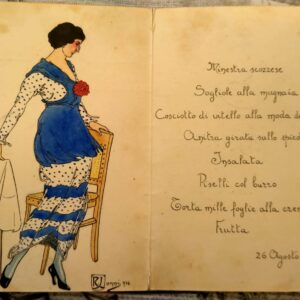 Minestra scozzese
Sogliole alla mugnaia
Cosciotto di vitello alla moda
Anitra girata sullo
Insalata
Piselli col burro
Torta mille foglie alla
Frutta
26 Agosto